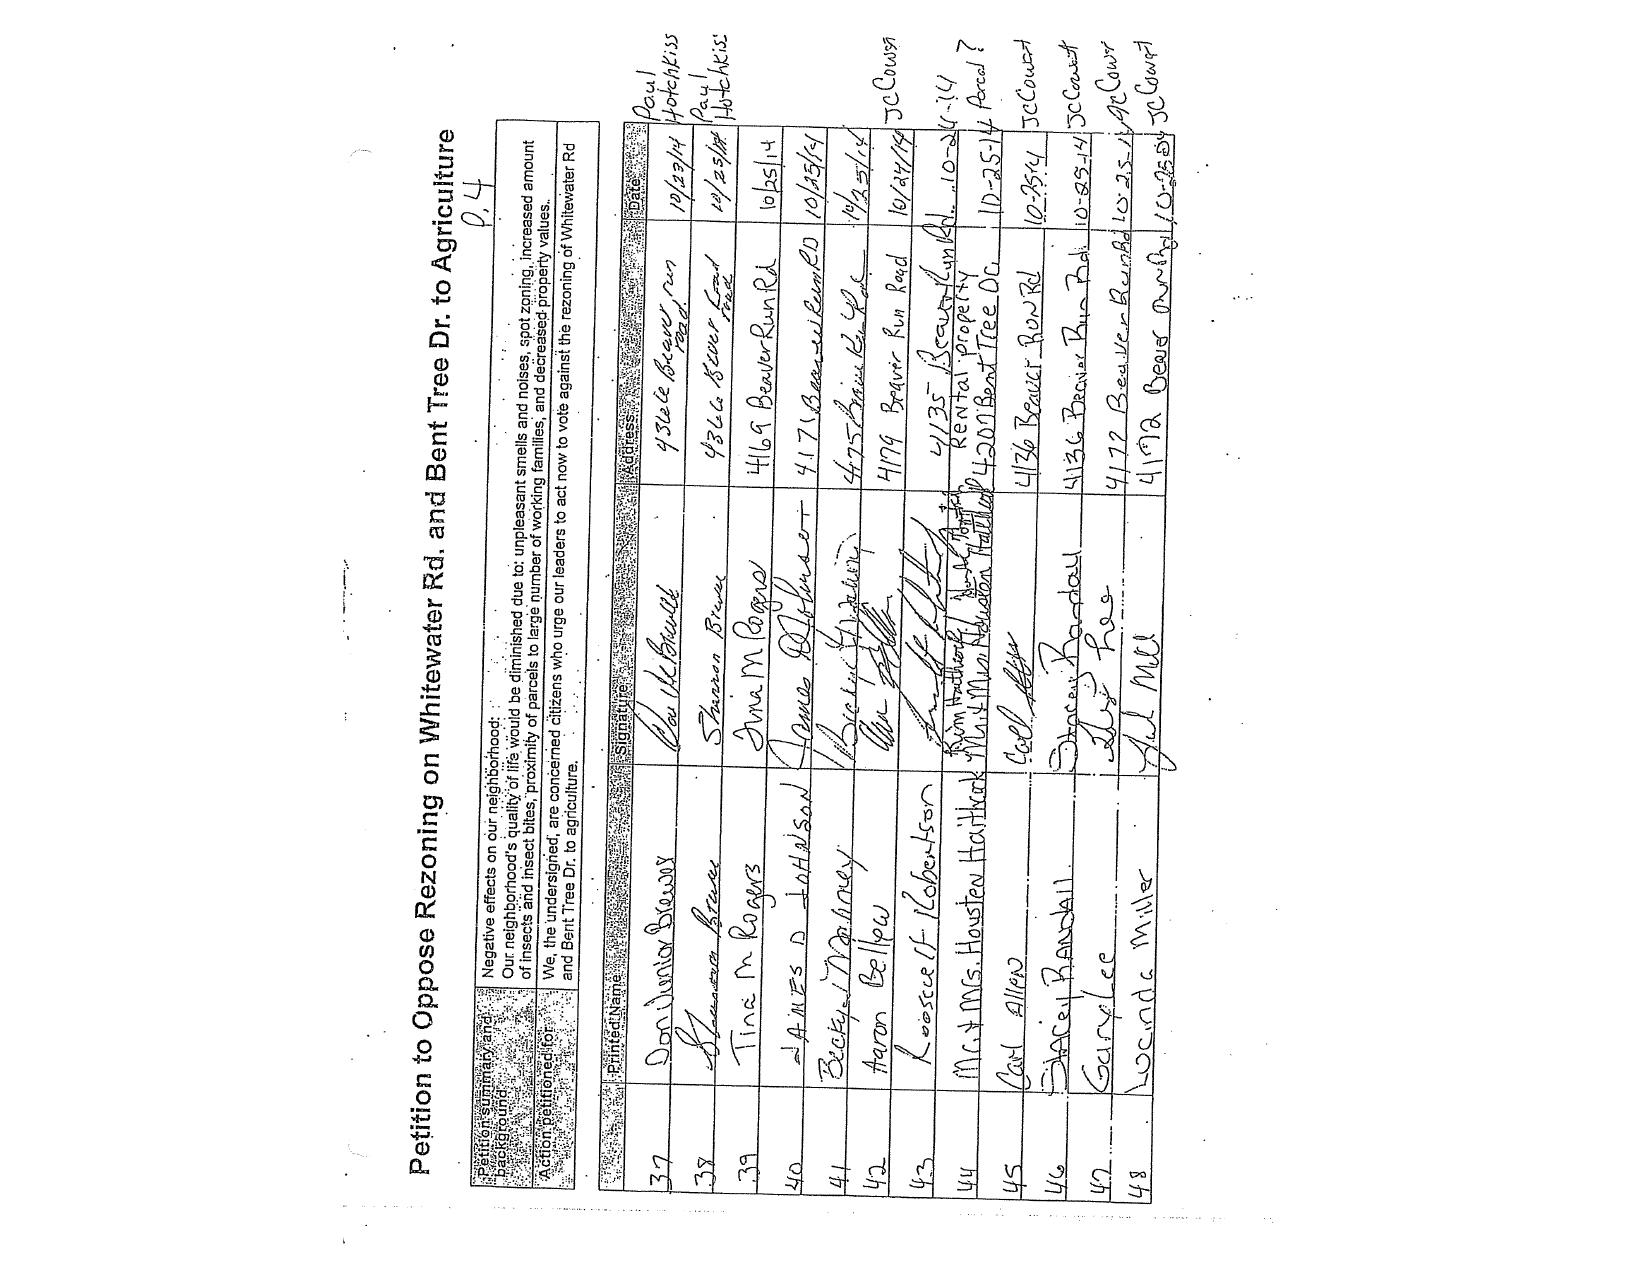 Petition to Oppose Rezoning on Whitewater Rd. and Bent Tree Dr. to Agriculture
p. 4
Petition summary and background
Negative effects on our neighborhood:
Our neighborhood's quality of life would be diminished due to: unpleasant smells and noises, spot zoning, increased amount
of insects and insect bites, proximity of parcels to large number of working families, and decreased property values.
Action petitioned for
We, the undersigned, are concerned citizens who urge our leaders to act now to vote against the rezoning of Whitewater Rd
and Bent Tree Dr. to agriculture.
Printed Name Signature Address Date
37 Don Junior Brewer 4366 Beaver run road 10/23/14 Paul Hotchkiss
38 Shannon Brewer Shannon Brewer 4366 Beaver road 10/25/14 Paul Hotchkiss
39 Tina M Rogers Tina M Rogers 4169 Beaver Run Rd 10/25/14
40 JAMES D JOHNSON James D Johnson 4171 Beaver Run RD 10/25/14
41 Becky Mahoney 4175 10/25/14
42 Aaron Bellew 4179 Beaver Run Road 10/24/14 JC Cowart
43 Roosevelt Robertson 4135 Beaver Run Rd. 10-24-14
44 Mr. & Mrs. Housten Haithcock Mr. & Mrs. Houston Rental property 4201 Bent Tree Dr. 10-25-14 Parcel?
45 Carl Allen Carl 4136 Beaver RUN Rd 10-25-14 JC Cowart
46 Stacey RANDAll Stacey Randall 4136 Beaver Run Rd. 10-25-14 JC Cowart
47 Gary Lee Lee 4172 Beaver Run Rd 10-25-14 JC Cowart
48 Lucinda Miller 4172 Beaver Run Rd 10-25-14 JC Cowart